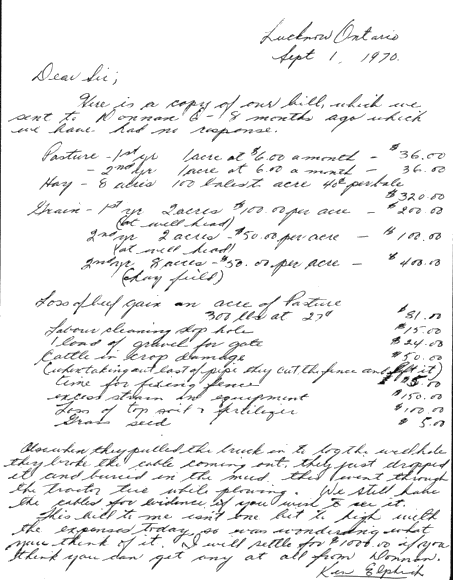 Lucknow Ontario
Sept 1, 1970.
Dear Sir;
Here is a copy of our bill, which we
sent to Donnan 6 - 8 months ago which
we have had no response.
Pasture - 1st yr 1 acre at $6.00 a month - $36.00
- 2nd yr 1 acre at 6.00 a month - 36.00
Hay - 8 acres 100 bales t. acre 40¢ per bale
$320.00
Grain - 1st yr 2 acres $100.00 per acre - $200.00
(at well head)
2nd yr 2 acres - $50.00 per acre - $100.00
(at well head)
2nd yr 8 acres - $50.00 per acre - $400.00
(hay field)
Loss of beef gain on acre of Pasture
300 lbs at 27¢ $81.00
Labour cleaning slop hole $15.00
1 load of gravel for gate $24.00
Cattle in crop damage $50.00
(when taking out last of pipe they cut the fence and left it)
time for fixing fence
excess strain on equipment $150.00
Loss of top soil & fertilizer $100.00
Grass seed $5.00
Also when they pulled the truck in to log the well hole
they broke the cable coming out. they just dropped
it and buried in the mud, this went through
the tractor tire while plowing. We still have
the cables for evidence if you wish to see it.
This bill to me isn't one bit to high with
the expenses today, so am wondering what
you think of it. I will settle for $1000.00 if you
think you can get any at all from Donnan.
Ken